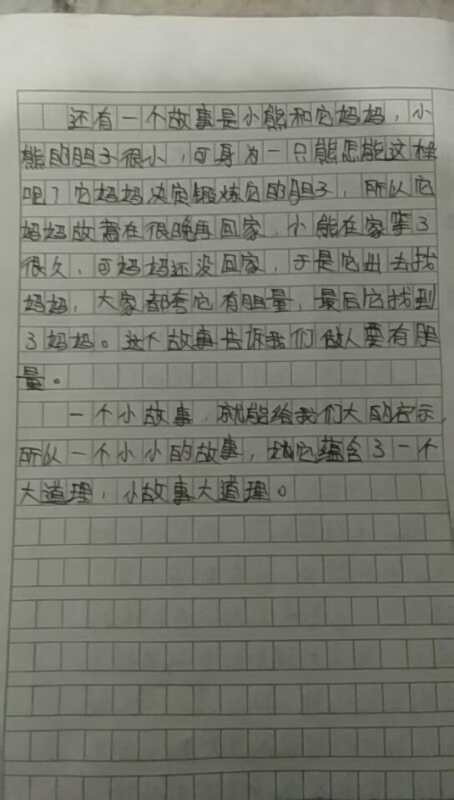 还有一个故事是小熊和它妈妈，小
熊的胆子很小，可身为一只熊怎能这样
呢？它妈妈决定锻炼它的胆子，所以它
妈妈故意在很晚再回家，小熊在家等了
很久，可妈妈还没回家，于是它出去找
妈妈，大家都夸它有胆量，最后它找到
了妈妈。这个故事告诉我们做人要有胆
量。
一个小故事，就能给我们大的启示，
所以一个小小的故事，它蕴含了一个
大道理，小故事大道理。